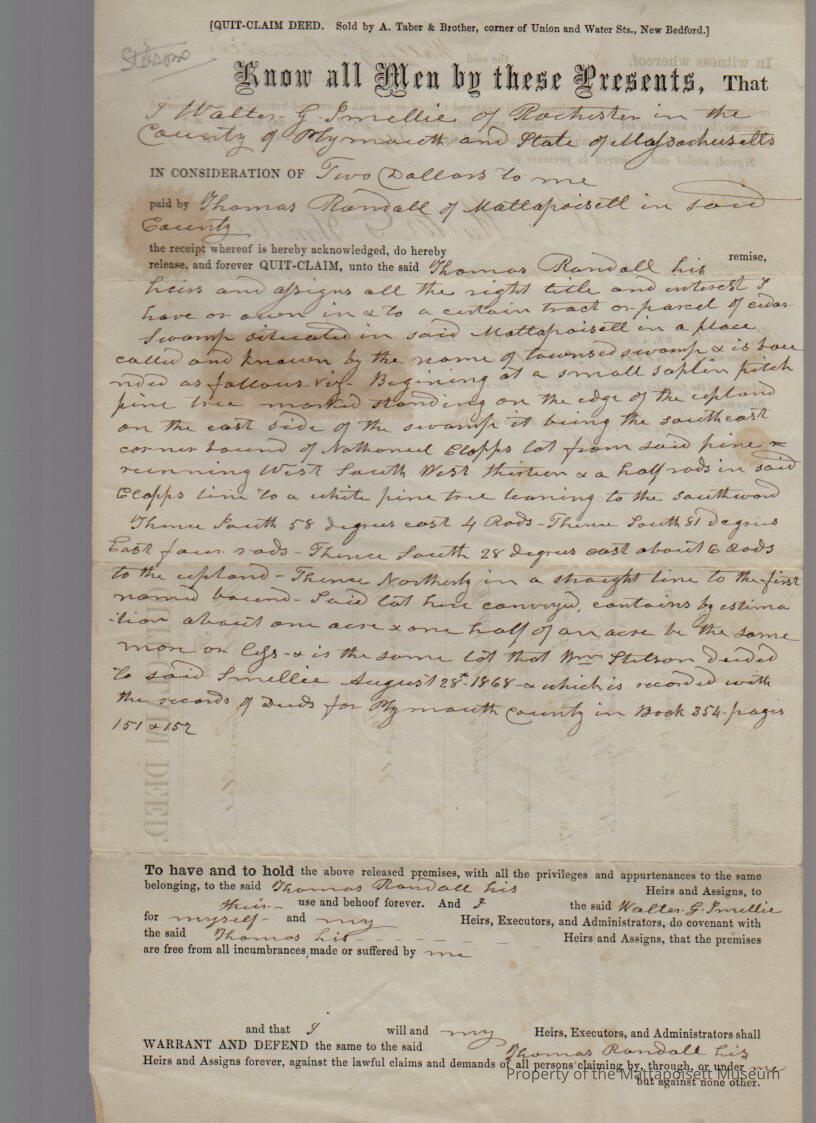 [QUIT-CLAIM DEED. Sold by A. Taber & Brother, corner of Union and Water Sts., New Bedford.]
Stetson
Know all Men by these Presents, That
I Walter G. Smellie of Rochester in the
County of Plymouth and State of Massachusetts
IN CONSIDERATION OF Two Dollars to me
paid by Thomas Randall of Mattapoisett in said
County
the receipt whereof is hereby acknowledged, do hereby remise,
release, and forever QUIT-CLAIM, unto the said Thomas Randall his
heirs and assigns all the right title and interest I
have or own in & to a certain tract or parcel of cedar
Swamp situated in said Mattapoisett in a place
called and known by the name of townsed swamp & is bou
nded as follows viz- Begining at a small saplin pitch
pine tree marked standing on the edge of the upland
on the east side of the swamp it being the southeast
corner bound of Nathaniel Clapps lot from said pine
running West South West thirteen & a half rods in said
Clapps line to a white pine tree leaning to the southward
Thence South 58 degrees east 4 Rods - Thence South 81 Degrees
East four rods - Thence South 28 degrees east about 6 Rods
to the upland - Thence Northerly in a straight line to the first
named bound - Said lot here conveyed, contains by estima
tion about one acre & one half of an acre be the same
more or less - & is the same lot that Wm Stetson deeded
to said Smellie August 28th 1868 - & which is recorded with
the records of Deeds for Plymouth County in Book 354 pages
151 & 152
To have and to hold the above released premises, with all the privileges and appurtenances to the same
belonging, to the said Thomas Randall his Heirs and Assigns, to
their use and behoof forever. And I the said Walter G. Smellie
for myself - and my Heirs, Executors, and Administrators, do covenant with
the said Thomas his - - - - - - Heirs and Assigns, that the premises
are free from all incumbrances made or suffered by me
and that I will and my Heirs, Executors, and Administrators shall
WARRANT AND DEFEND the same to the said Thomas Randall his
Heirs and Assigns forever, against the lawful claims and demands of all persons claiming by, through, or under me
but against none other.
Property of the Mattapoisett Museum